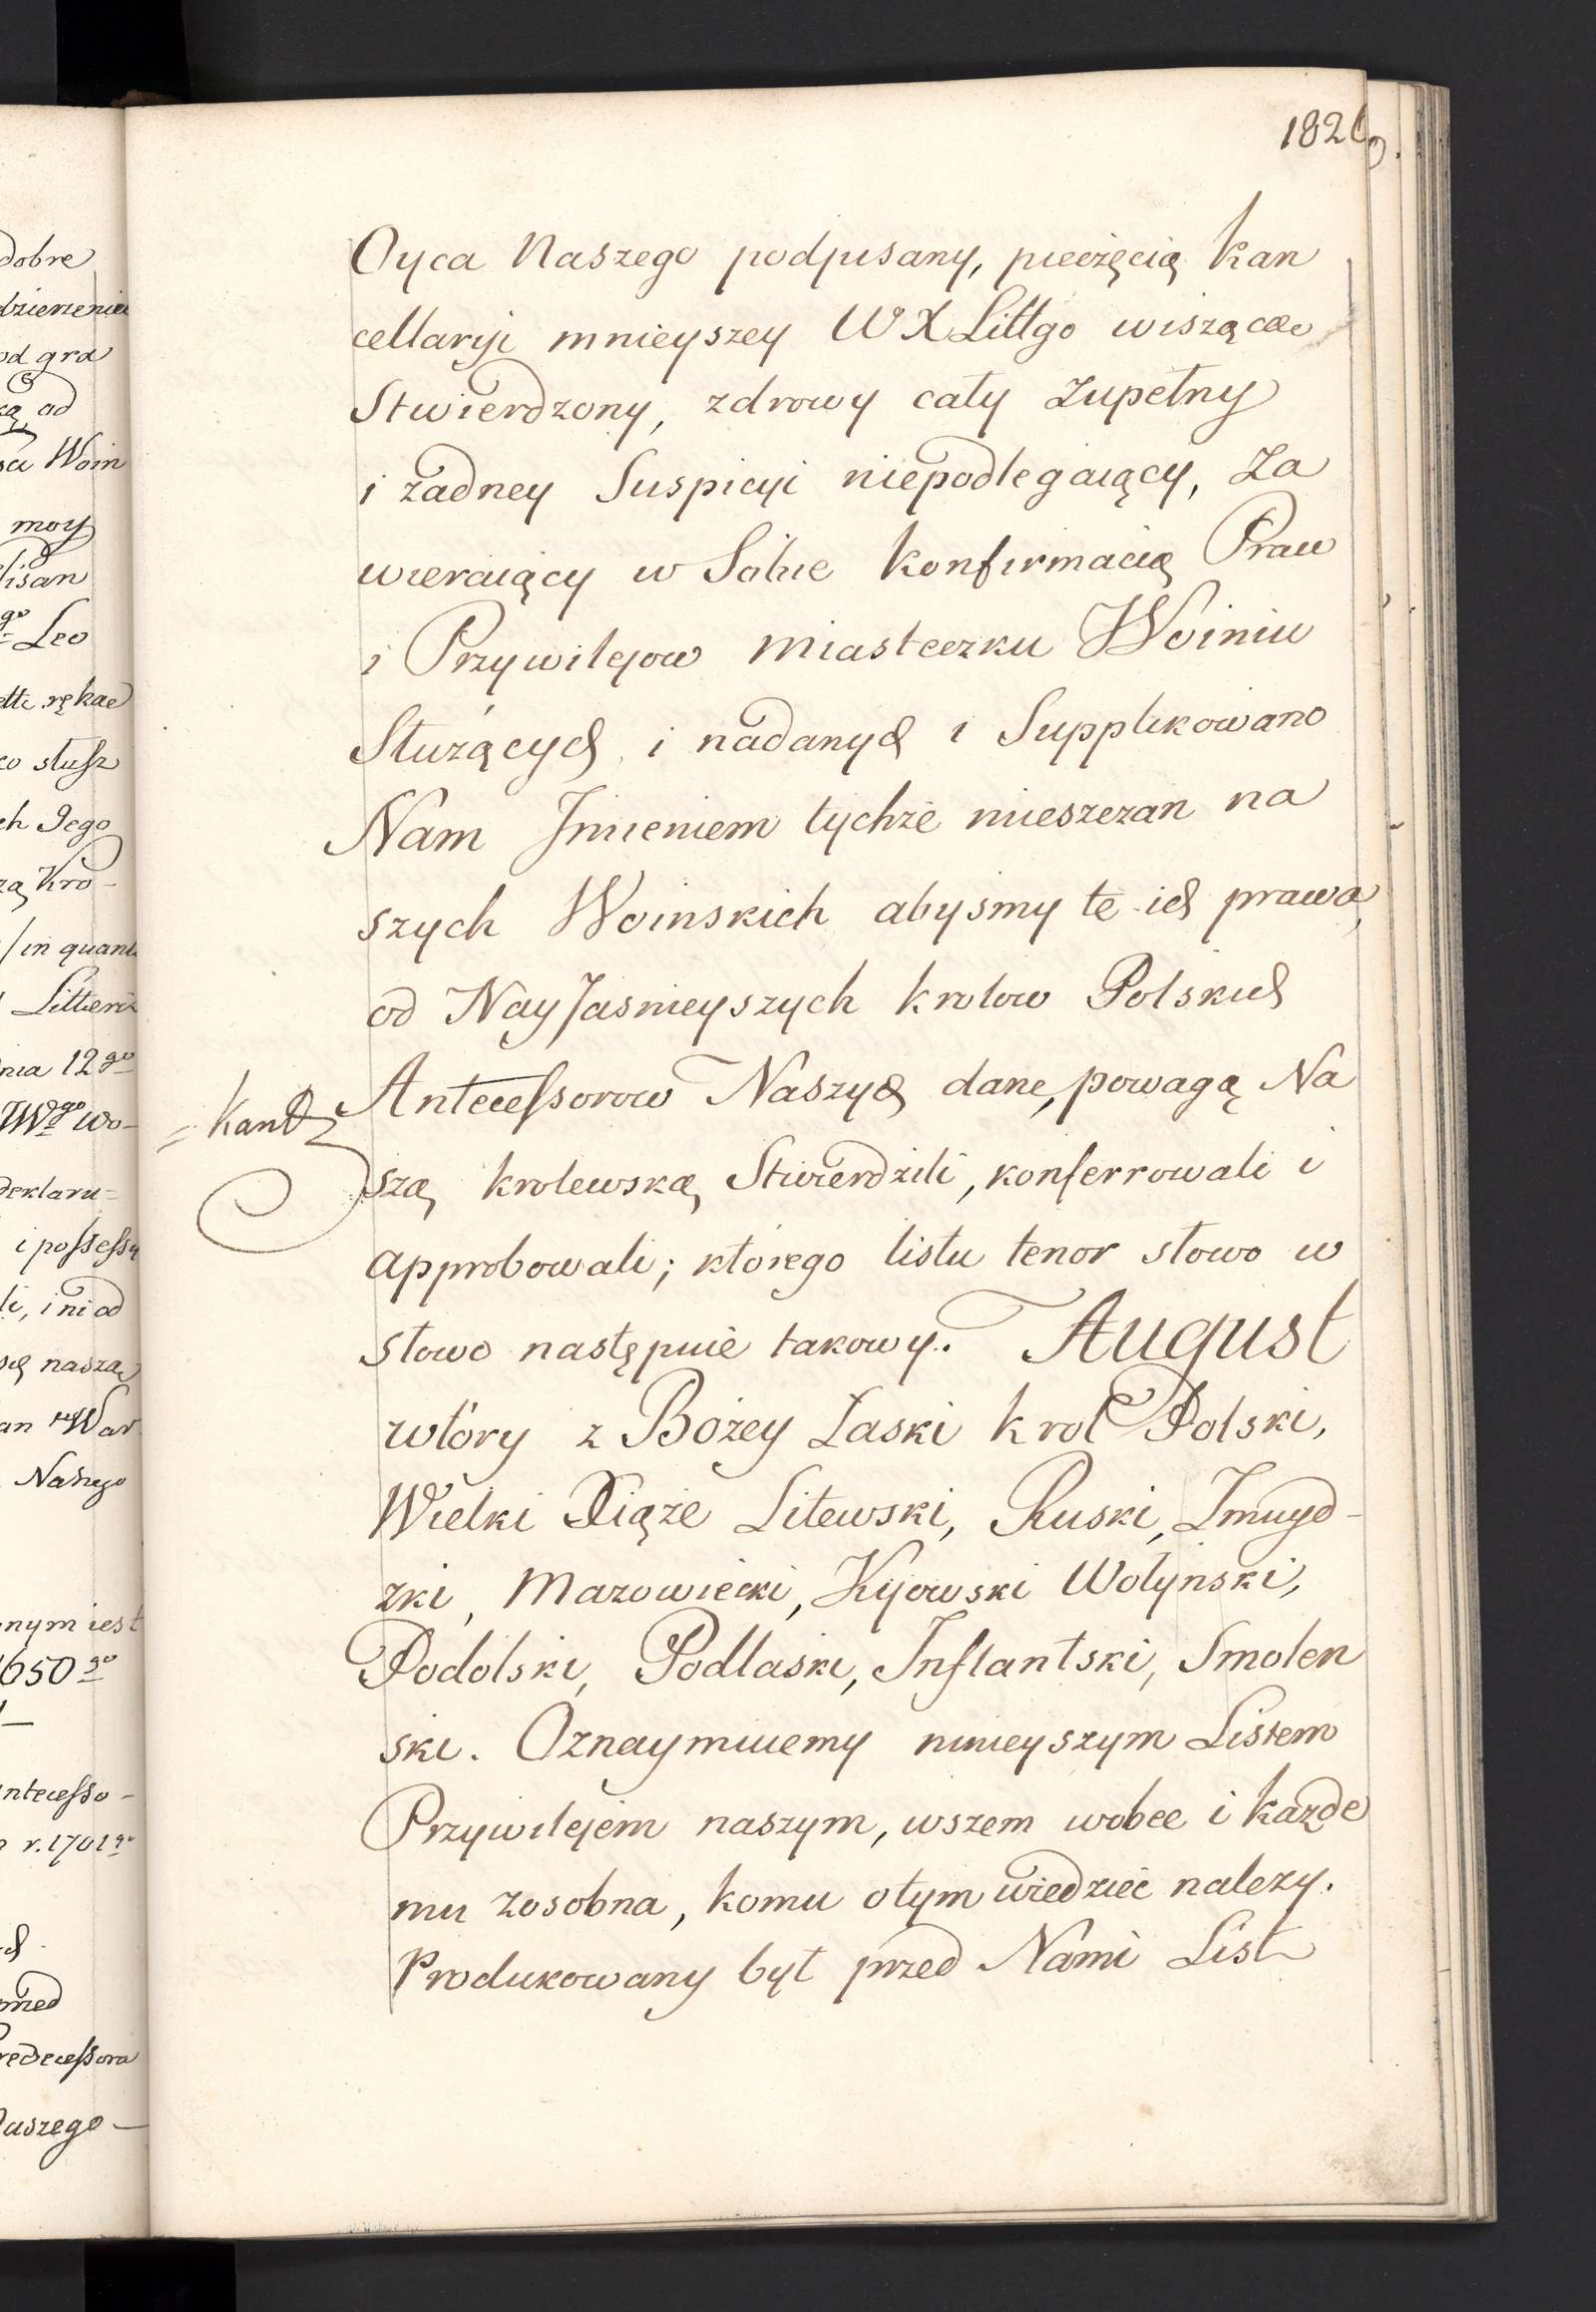 1826.
Oyca Naszego podpisany, pieczęcią Kan
cellaryi mnieyszey WXLittgo wiszącą
Stwierdzony, zdrowy cały zupełny
i żadney Suspicyi niepodlegaiący, Za
wieraiący w Sobie Konfirmacią Praw
i Przywilejow Miasteczku Woiniu
Służących i nadanych i Supplikowano
Nam Jmieniem tychże mieszczan na
szych Woinskich abyśmy te ich prawa,
od NayJasnieyszych krolow Polskich
Antecessorow Naszych dane, powagą Na
szą krolewską Stwierdzili, konferrowali i
approbowali; którego listu tenor słowo w
słowo następuie takowy. August
wtóry z Bożey Łaski krol Polski,
Wielki Xiąże Litewski, Ruski, Zmuyd-
zki, Mazowiecki, Kijowski Wołyński,
Podolski, Podlaski, Inflantski, Smolen
ski. Oznaymuiemy ninieyszym Listem
Przywilejem naszym, wszem wobec i każde
mu zosobna, komu otym wiedzieć nalezy.
Produkowany był przed Nami List
dobre
od gra
ką od
Woin
moy
Leo
ręką
Jego
Kro-
/in quant
12go
wo-
deklaru=
i possessy
i ni od
naszą
War
Naszego
nym iest
1650go
ntecesso-
r. 1701go
przed
redecessora
Naszego —